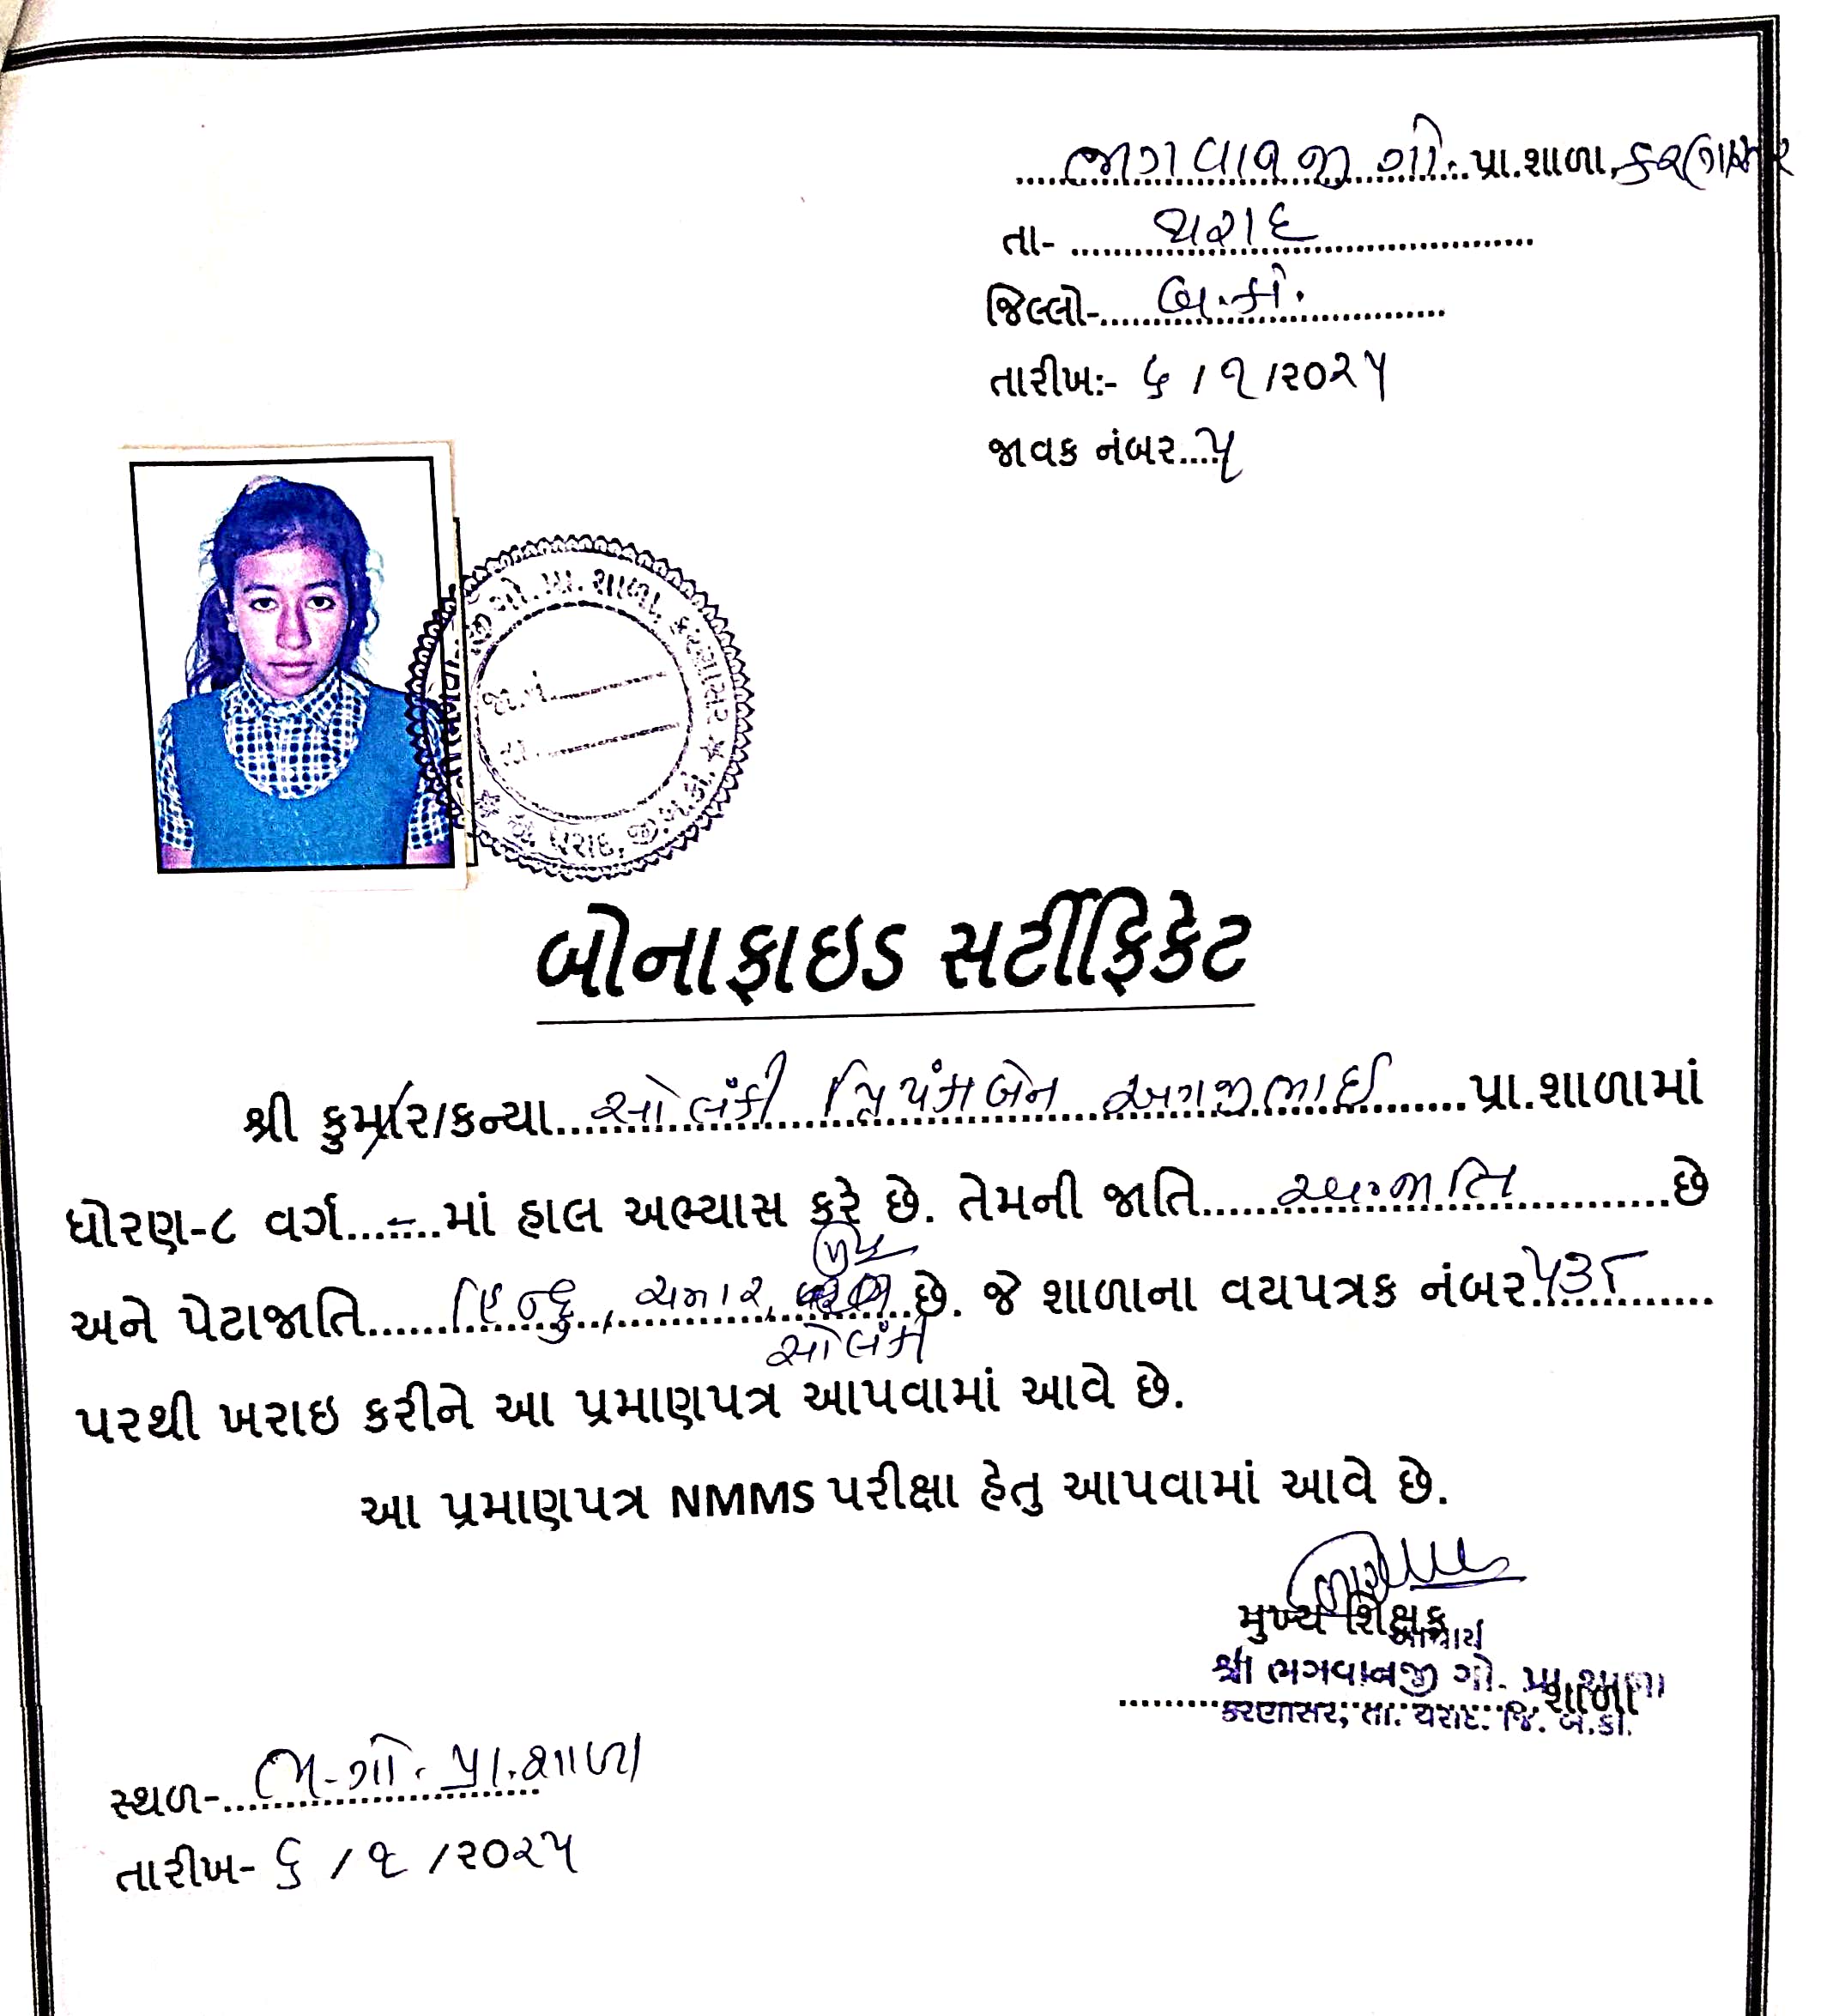 ભગવાનજી ગો. પ્રા.શાળા, કરણાસર
તા- થરાદ
જિલ્લો- બ.કાં.
તારીખ:- ૬ / ૧ /૨૦૨૫
જાવક નંબર....૫
જી ગો. પ્રા. શાળા, કરણાસર
જા.નં.
તા.
તા. થરાદ, જી.બ.કાં.
બોનાફાઇડ સર્ટીફિકેટ
શ્રી કુમાર/કન્યા સોલંકી પ્રિયંકાબેન જગજીભાઈ પ્રા.શાળામાં
ધોરણ-૮ વર્ગ...-...માં હાલ અભ્યાસ કરે છે. તેમની જાતિ અનુ.જાતિ છે
અને પેટાજાતિ હિન્દુ, ચમાર, સોલંકી છે. જે શાળાના વયપત્રક નંબર ૫૩૮
પરથી ખરાઇ કરીને આ પ્રમાણપત્ર આપવામાં આવે છે.
આ પ્રમાણપત્ર NMMS પરીક્ષા હેતુ આપવામાં આવે છે.
મુખ્ય શિક્ષક
આચાર્ય
શ્રી ભગવાનજી ગો. પ્રા.શાળા
શાળા
કરણાસર, તા. થરાદ. જિ. બ.કાં.
સ્થળ- ભ.ગો. પ્રા.શાળા
તારીખ- ૬ / ૧ /૨૦૨૫